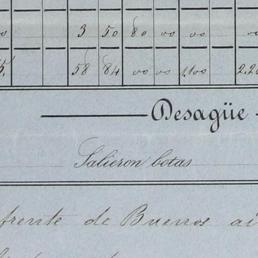 0 3 50 80 00 00
5! 58 84 00 00 2,00 2.20
Desagüe
Salieron botas
frente de Buenos ai